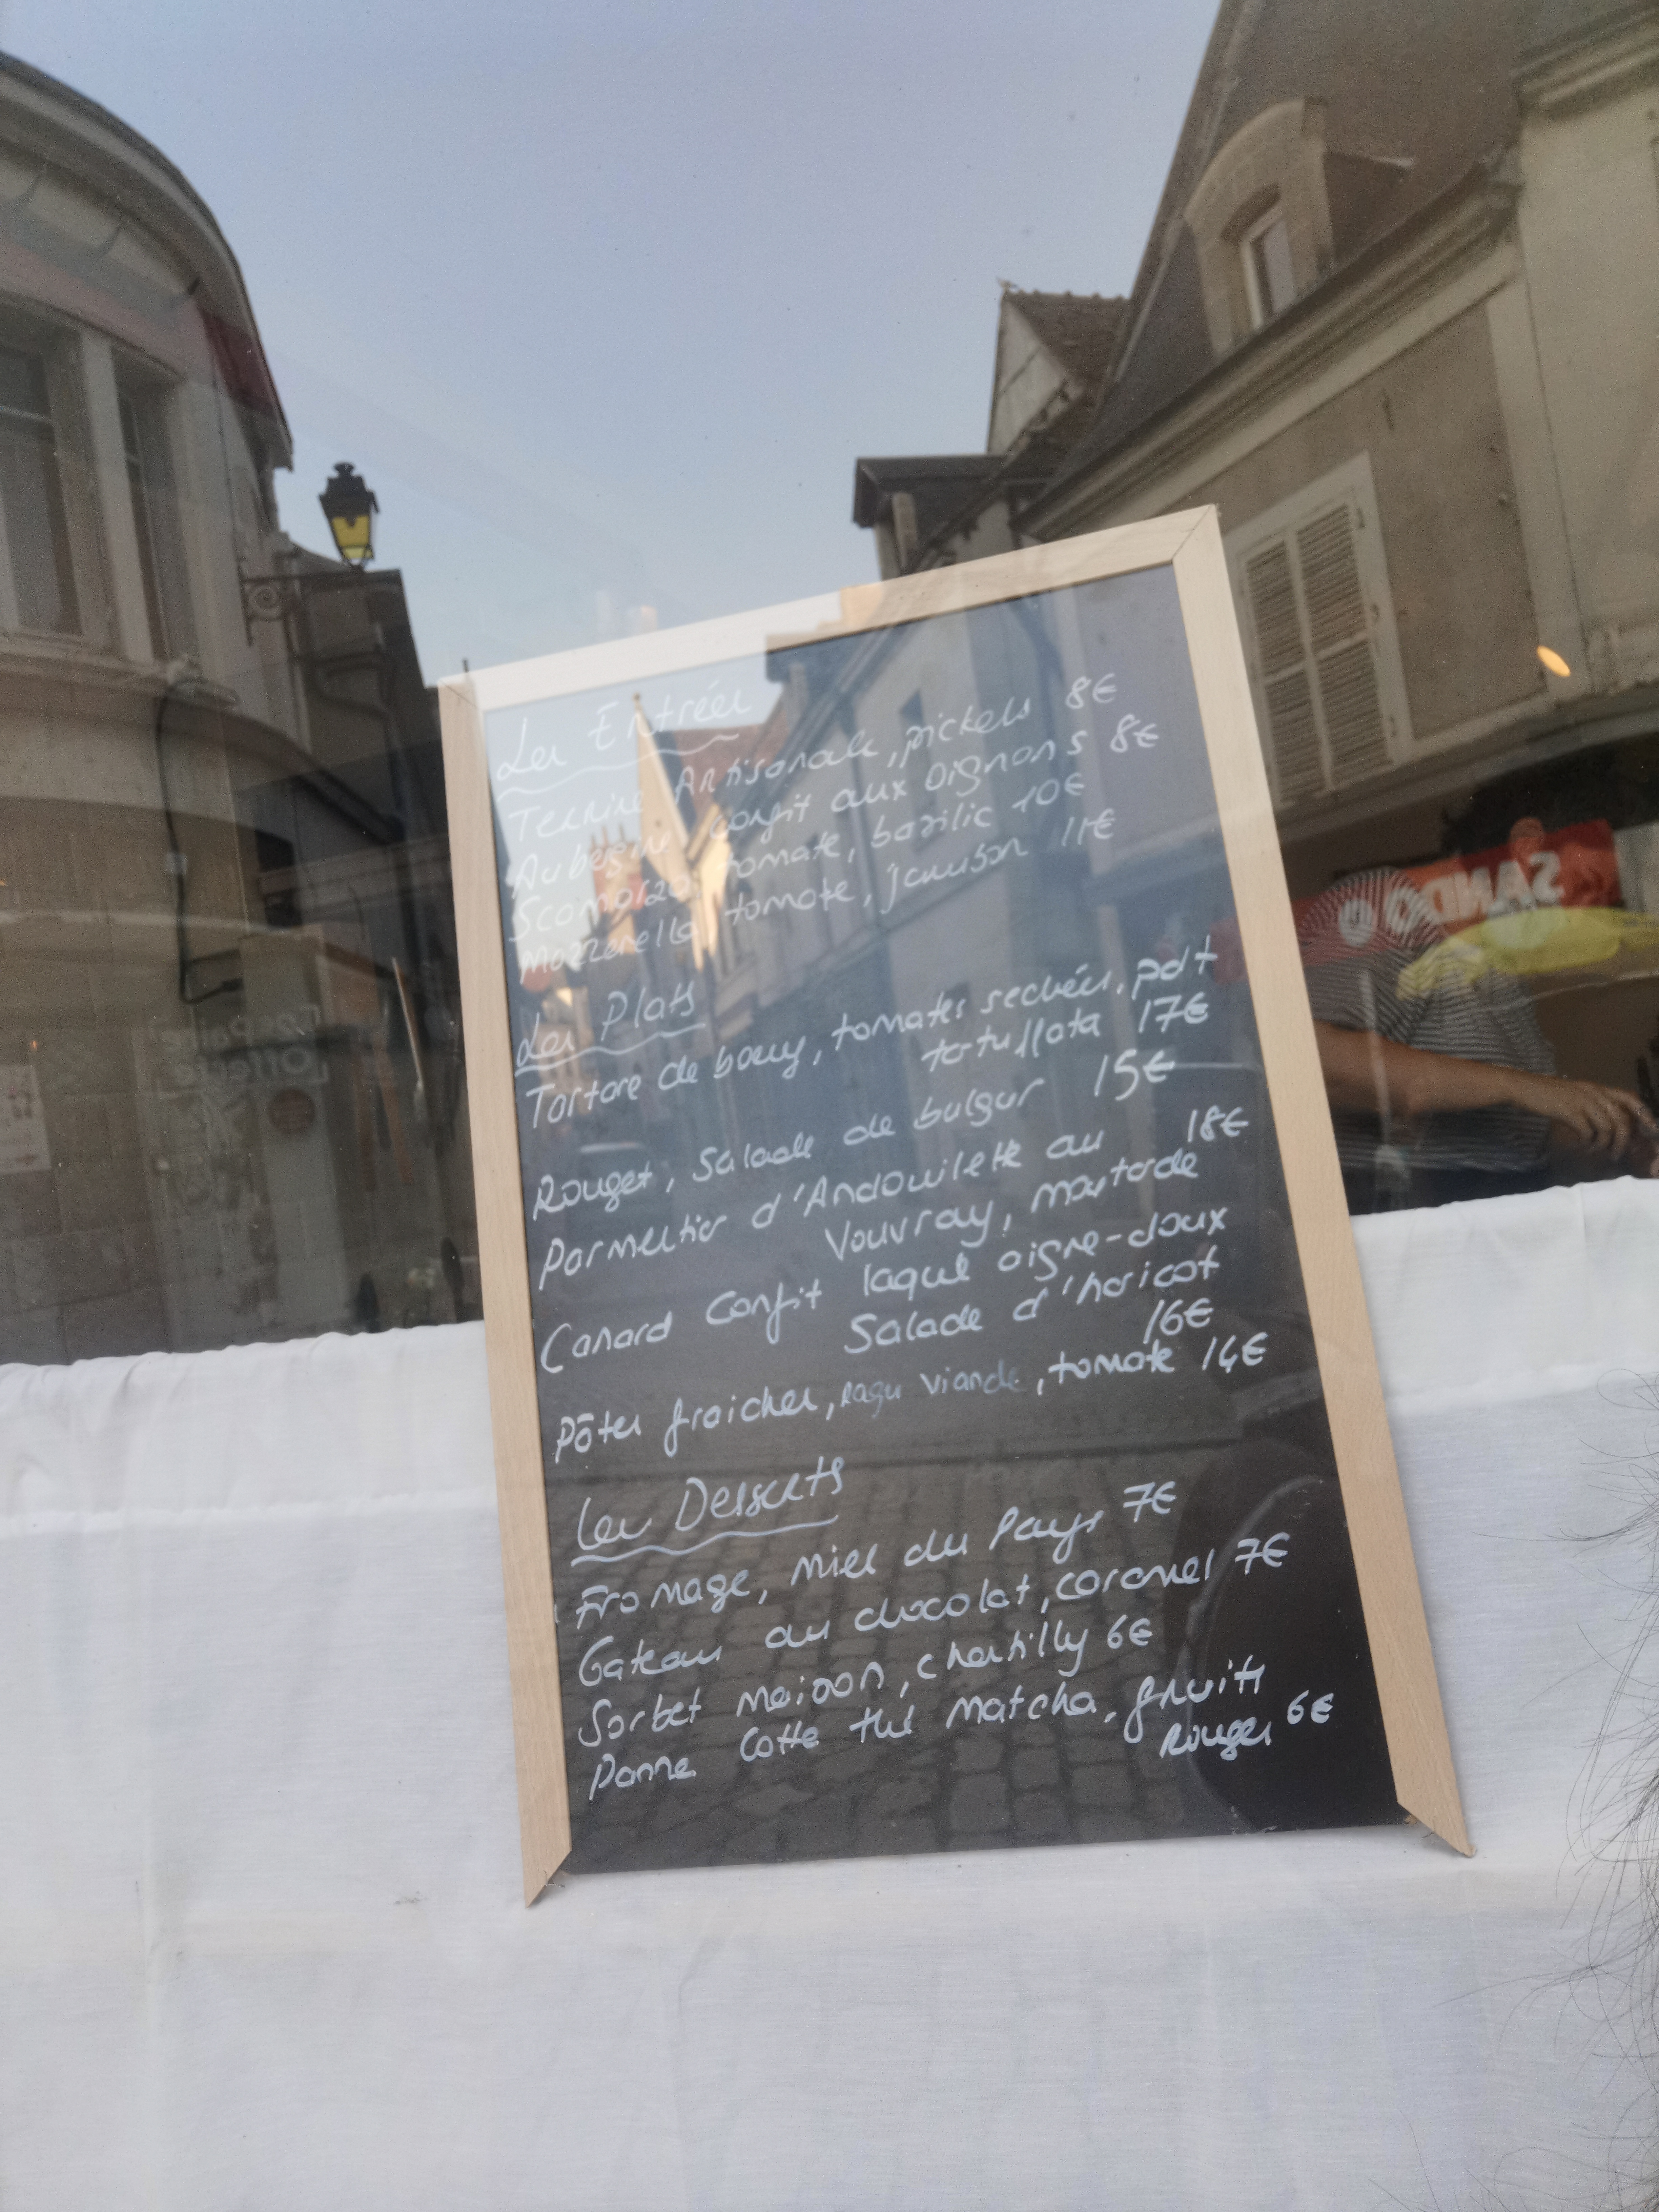 Les Entrées
Terrine Artisanale, pickels 8€
Aubergine confit aux oignons 8€
Scamorza, tomate, basilic 10€
Mozzarella tomate, jambon 11€
Les Plats
Tartare de bœuf, tomates sechées, pdt
17€
Rouget, Salade de bulgur 15€
Parmentier d'Andouilette au 18€
Vouvray, moutarde
Canard Confit laqué aigre-doux
Salade d'haricot
16€
Pâtes fraiches, ragu viande, tomate 14€
Les Desserts
Fromage, miel du Pays 7€
Gateau au chocolat, caramel 7€
Sorbet maison, chantilly 6€
Panna Cotta thé matcha, fruits
Rouges 6€
SANDO